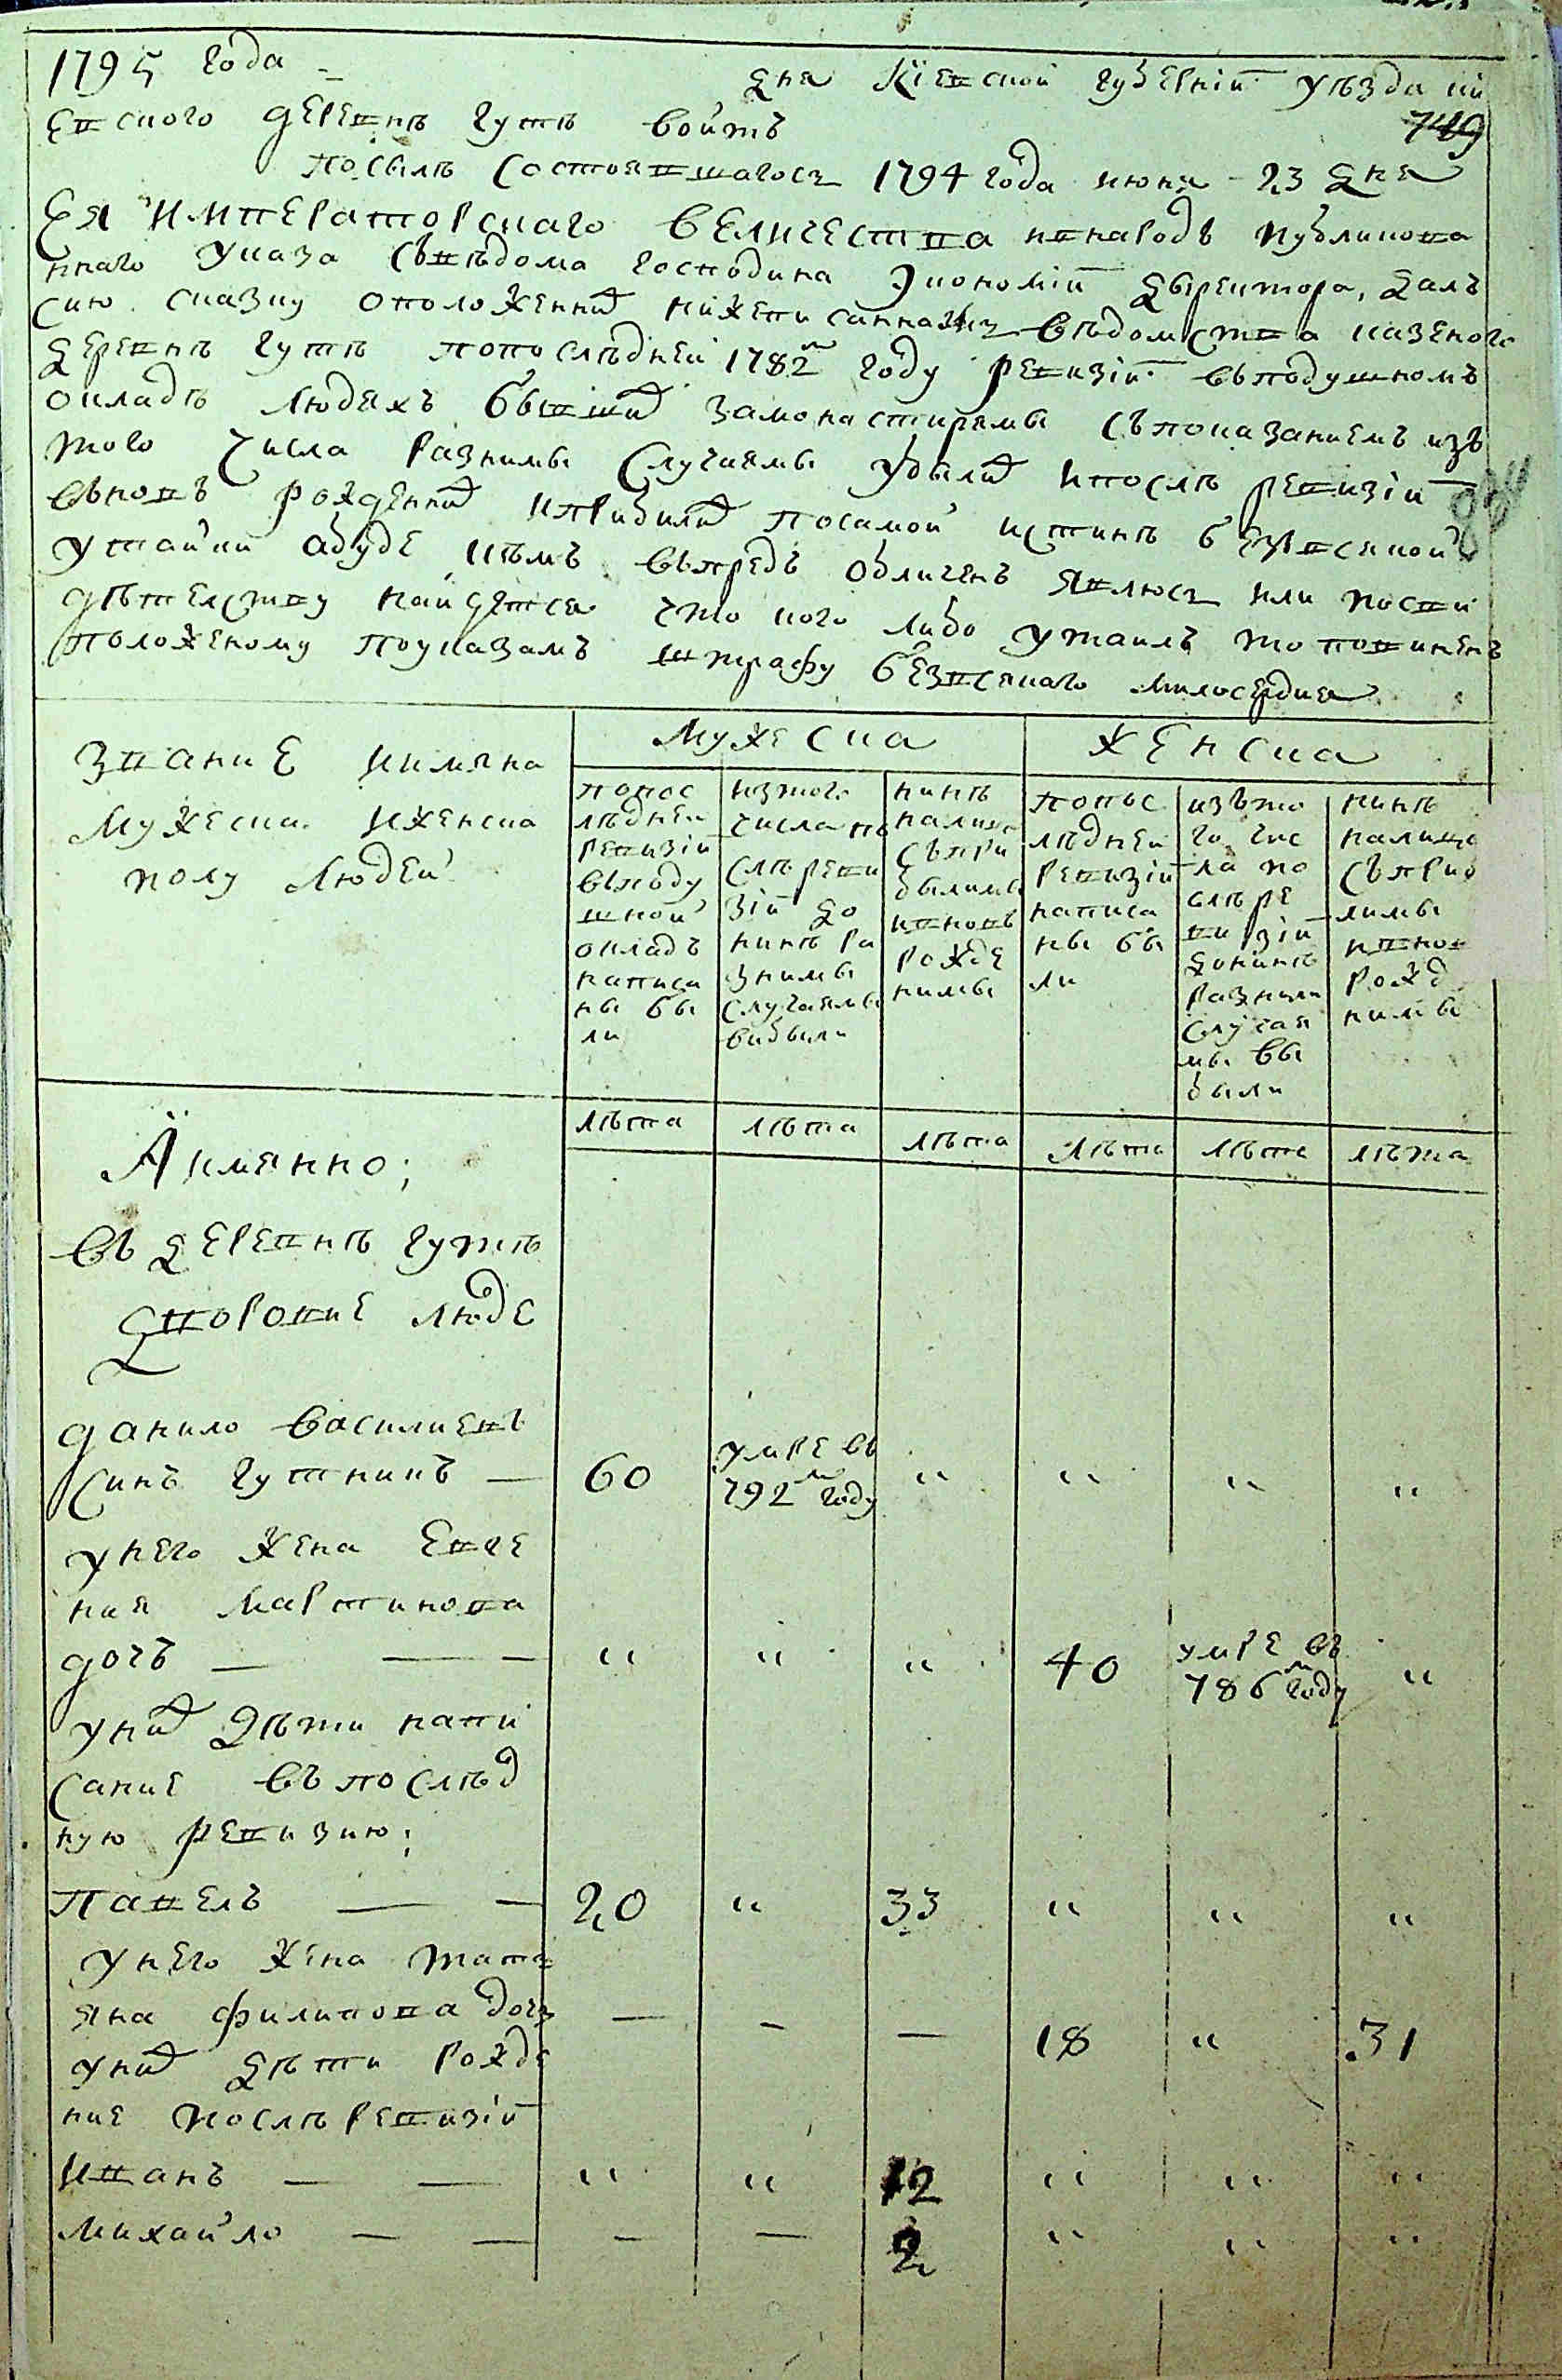 1795 года дня Кіевской губерніи уѣзда кі
749
евского деревнѣ гутѣ войтъ
посылѣ состоявшагось 1794 года июня 23 дня
Ея императорскаго величества внародъ публикова
ннаго указа съвѣдома господина Экономіи дыректора, далъ
сию сказку оположенних нижеписанна въ вѣдомства казеного
деревнѣ гутѣ попослѣдней 1782м году ревизіи въподушномъ
окладѣ людяхъ бывших замонастирямы съпоказаниемъ изъ
того числа разнимы случаямы убылих ипослѣ ревизіи
вьновъ рожденних иприбилих посамой истинѣ безвсякой
утайки абуде кѣмъ въпредъ обличенъ явлюсь или посви
дѣтелству найдетса что кого либо утаилъ то повиненъ
положеному поуказамъ штрафу безвсякаго милосердия
звание иимяна
мужеска иженска
полу людей
мужеска
женска
попос
лѣдней
ревизіи
въподу
шной
окладъ
написа
ны бы
ли
изтого
числа по
слѣ реви
зіи до
нинѣ ра
знимы
случаямы
вибыли
нинѣ
налицо
съпри
былимы
ивновъ
рожде
нимы
попос
лѣдней
ревизіи
написа
ны бы
ли
изъто
го чис
ла по
слѣ ре
ви зіи
донинѣ
разними
случая
мы вы
были
нинѣ
налицо
съприб
лимы
ивнов
рожд
нимы
лѣта лѣта лѣта лѣта лѣта лѣта
А имянно;
въ деревнѣ гутѣ
дворовие люде
данило василиевъ
синъ гутникъ — 60 умре въ 792м году " " " "
унего жена Евге
ния мартинова
дочъ — — — " " " 40 умре въ 786м году "
уних дѣти напи
сание въпослѣд
ную ревизию;
павелъ — — 20 " 33 " " "
унего жена тать
яна филипова дочь — — — 18 " 31
уних дѣти рожде
ние послѣ ревизіи
иванъ — — " " 12 " " "
михайло — — — — 2 " " "